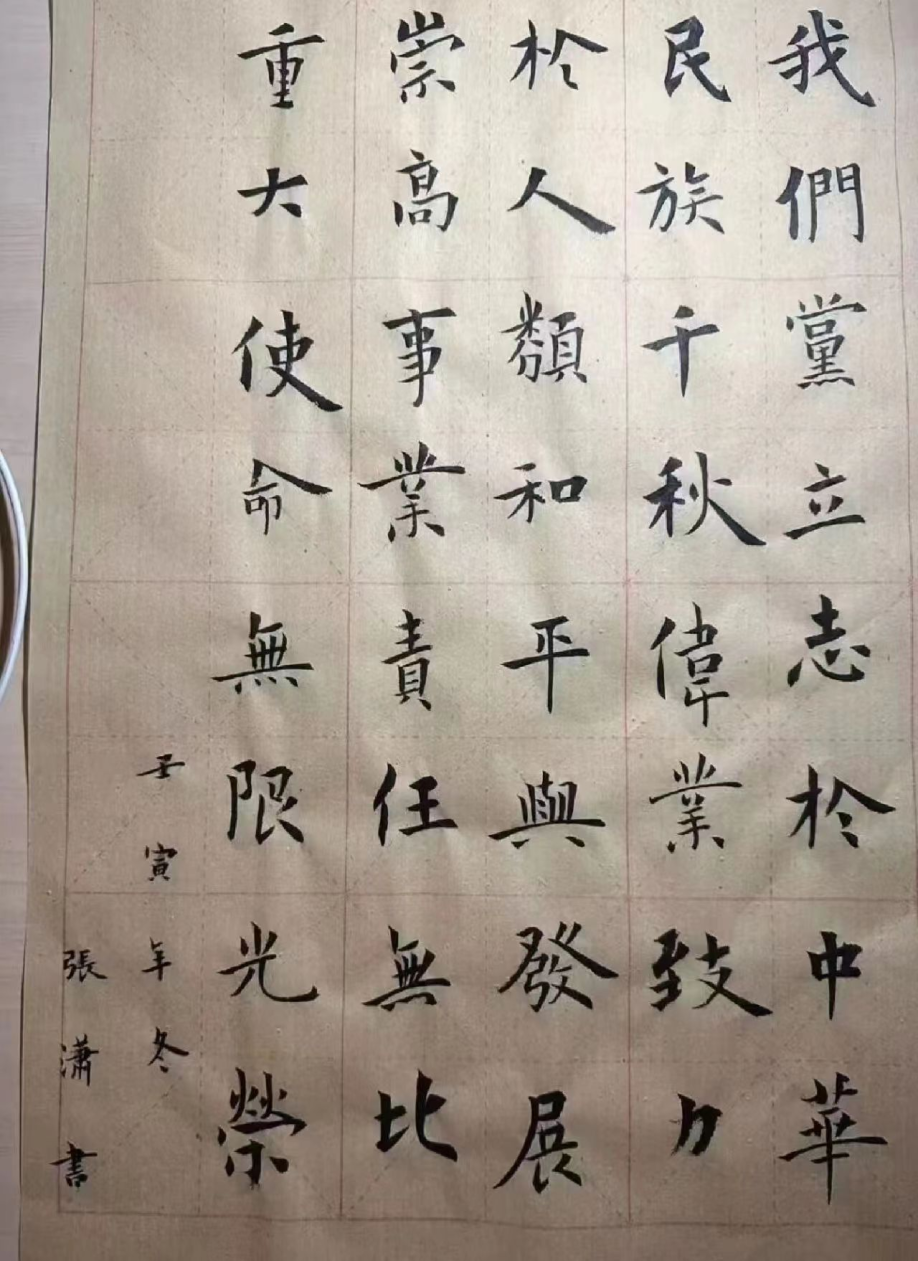 我們黨立志於中華
民族千秋偉業致力
於人類和平與發展
崇高事業責任無比
重大使命無限光榮
壬寅年冬
張瀟書